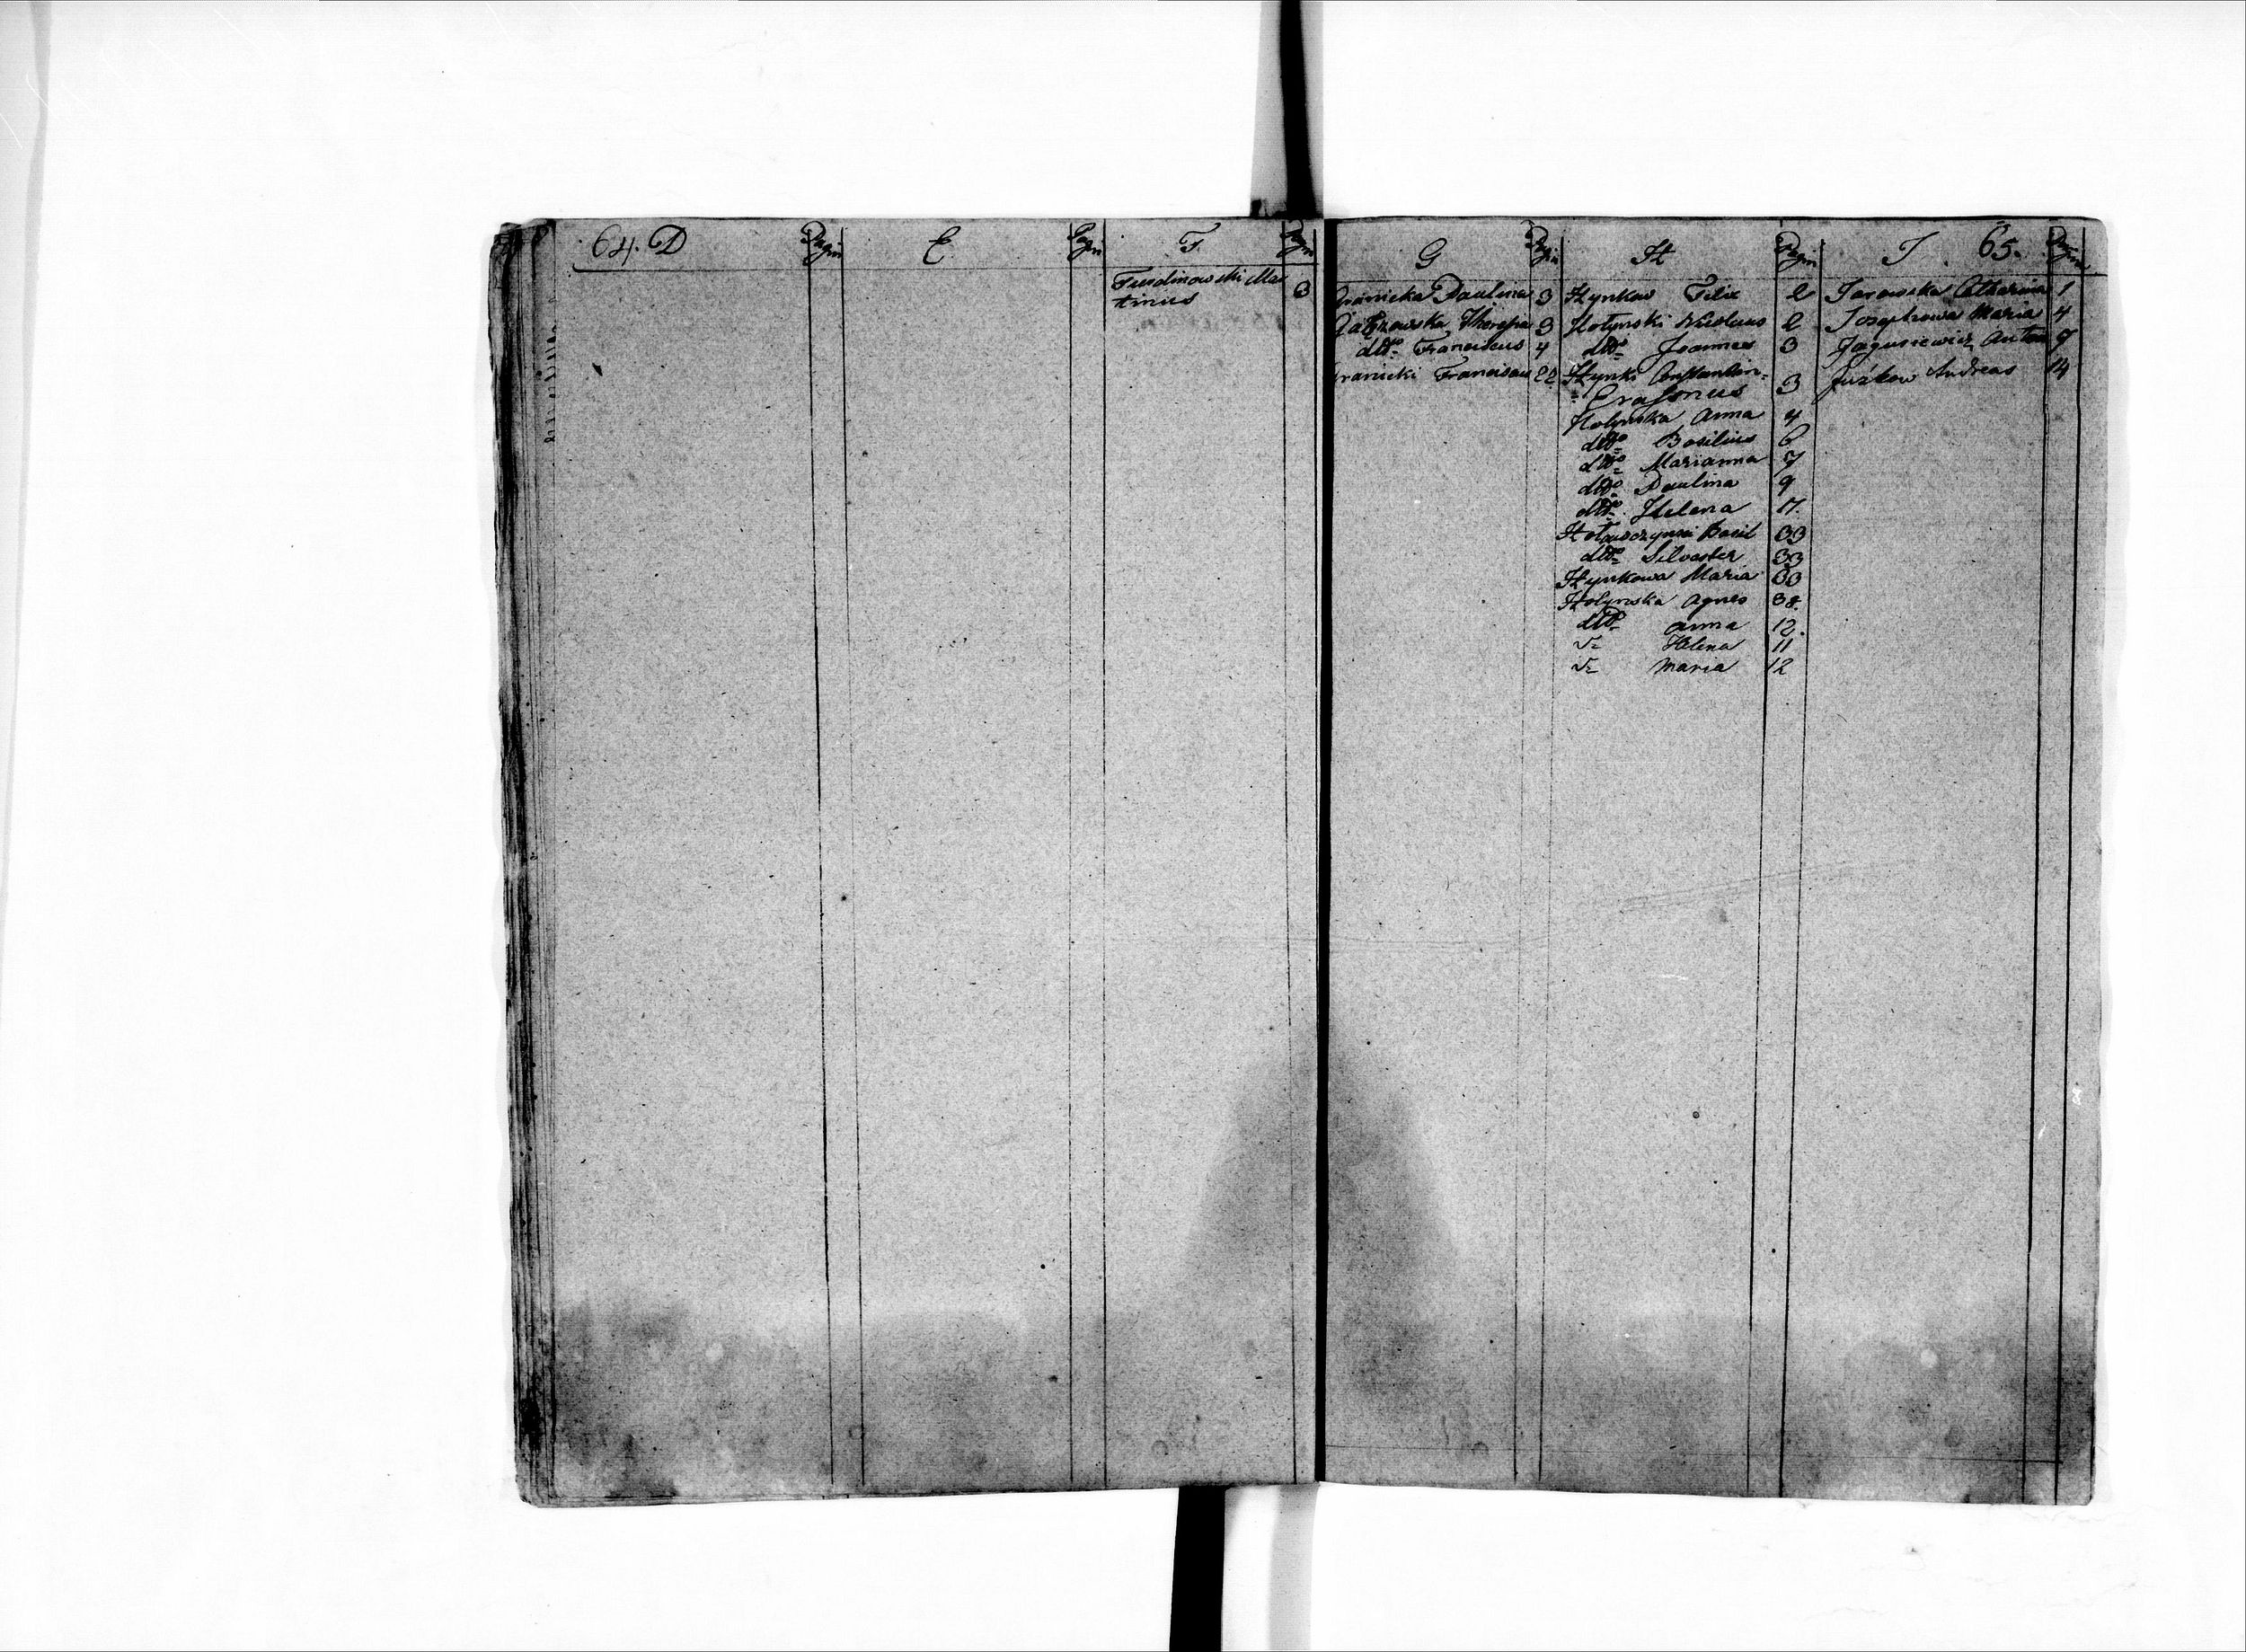 64. D Pagin E Pagin F. Pagin
Fundinowski Mar
tinus 3
G Pagin H Pagin J. 65. Pagin
Granicka Paulina 3
Gabzowska Theresia 3
dtto Franciscus 4
Granicki Franciscus 22
Hynkow Felix 2
Hołynski Nicolaus 2
dtto Joannes 3
Hynki Constantin=
= Erasmus 3
Holynska Anna 4
dtto Basilius 6
dtto Marianna 7
dtto Paulina 9
dtto Helena 17.
Basil 33
dtto Silvester 33
Hynkowa Maria 33
Holynska Agnes 38.
dtto Anna 12.
Helena 11
Maria 12
Jarowska Catharina 1
Josephowa Maria 4
Jagusiewicz Anton 9
Juźkow Andreas 14